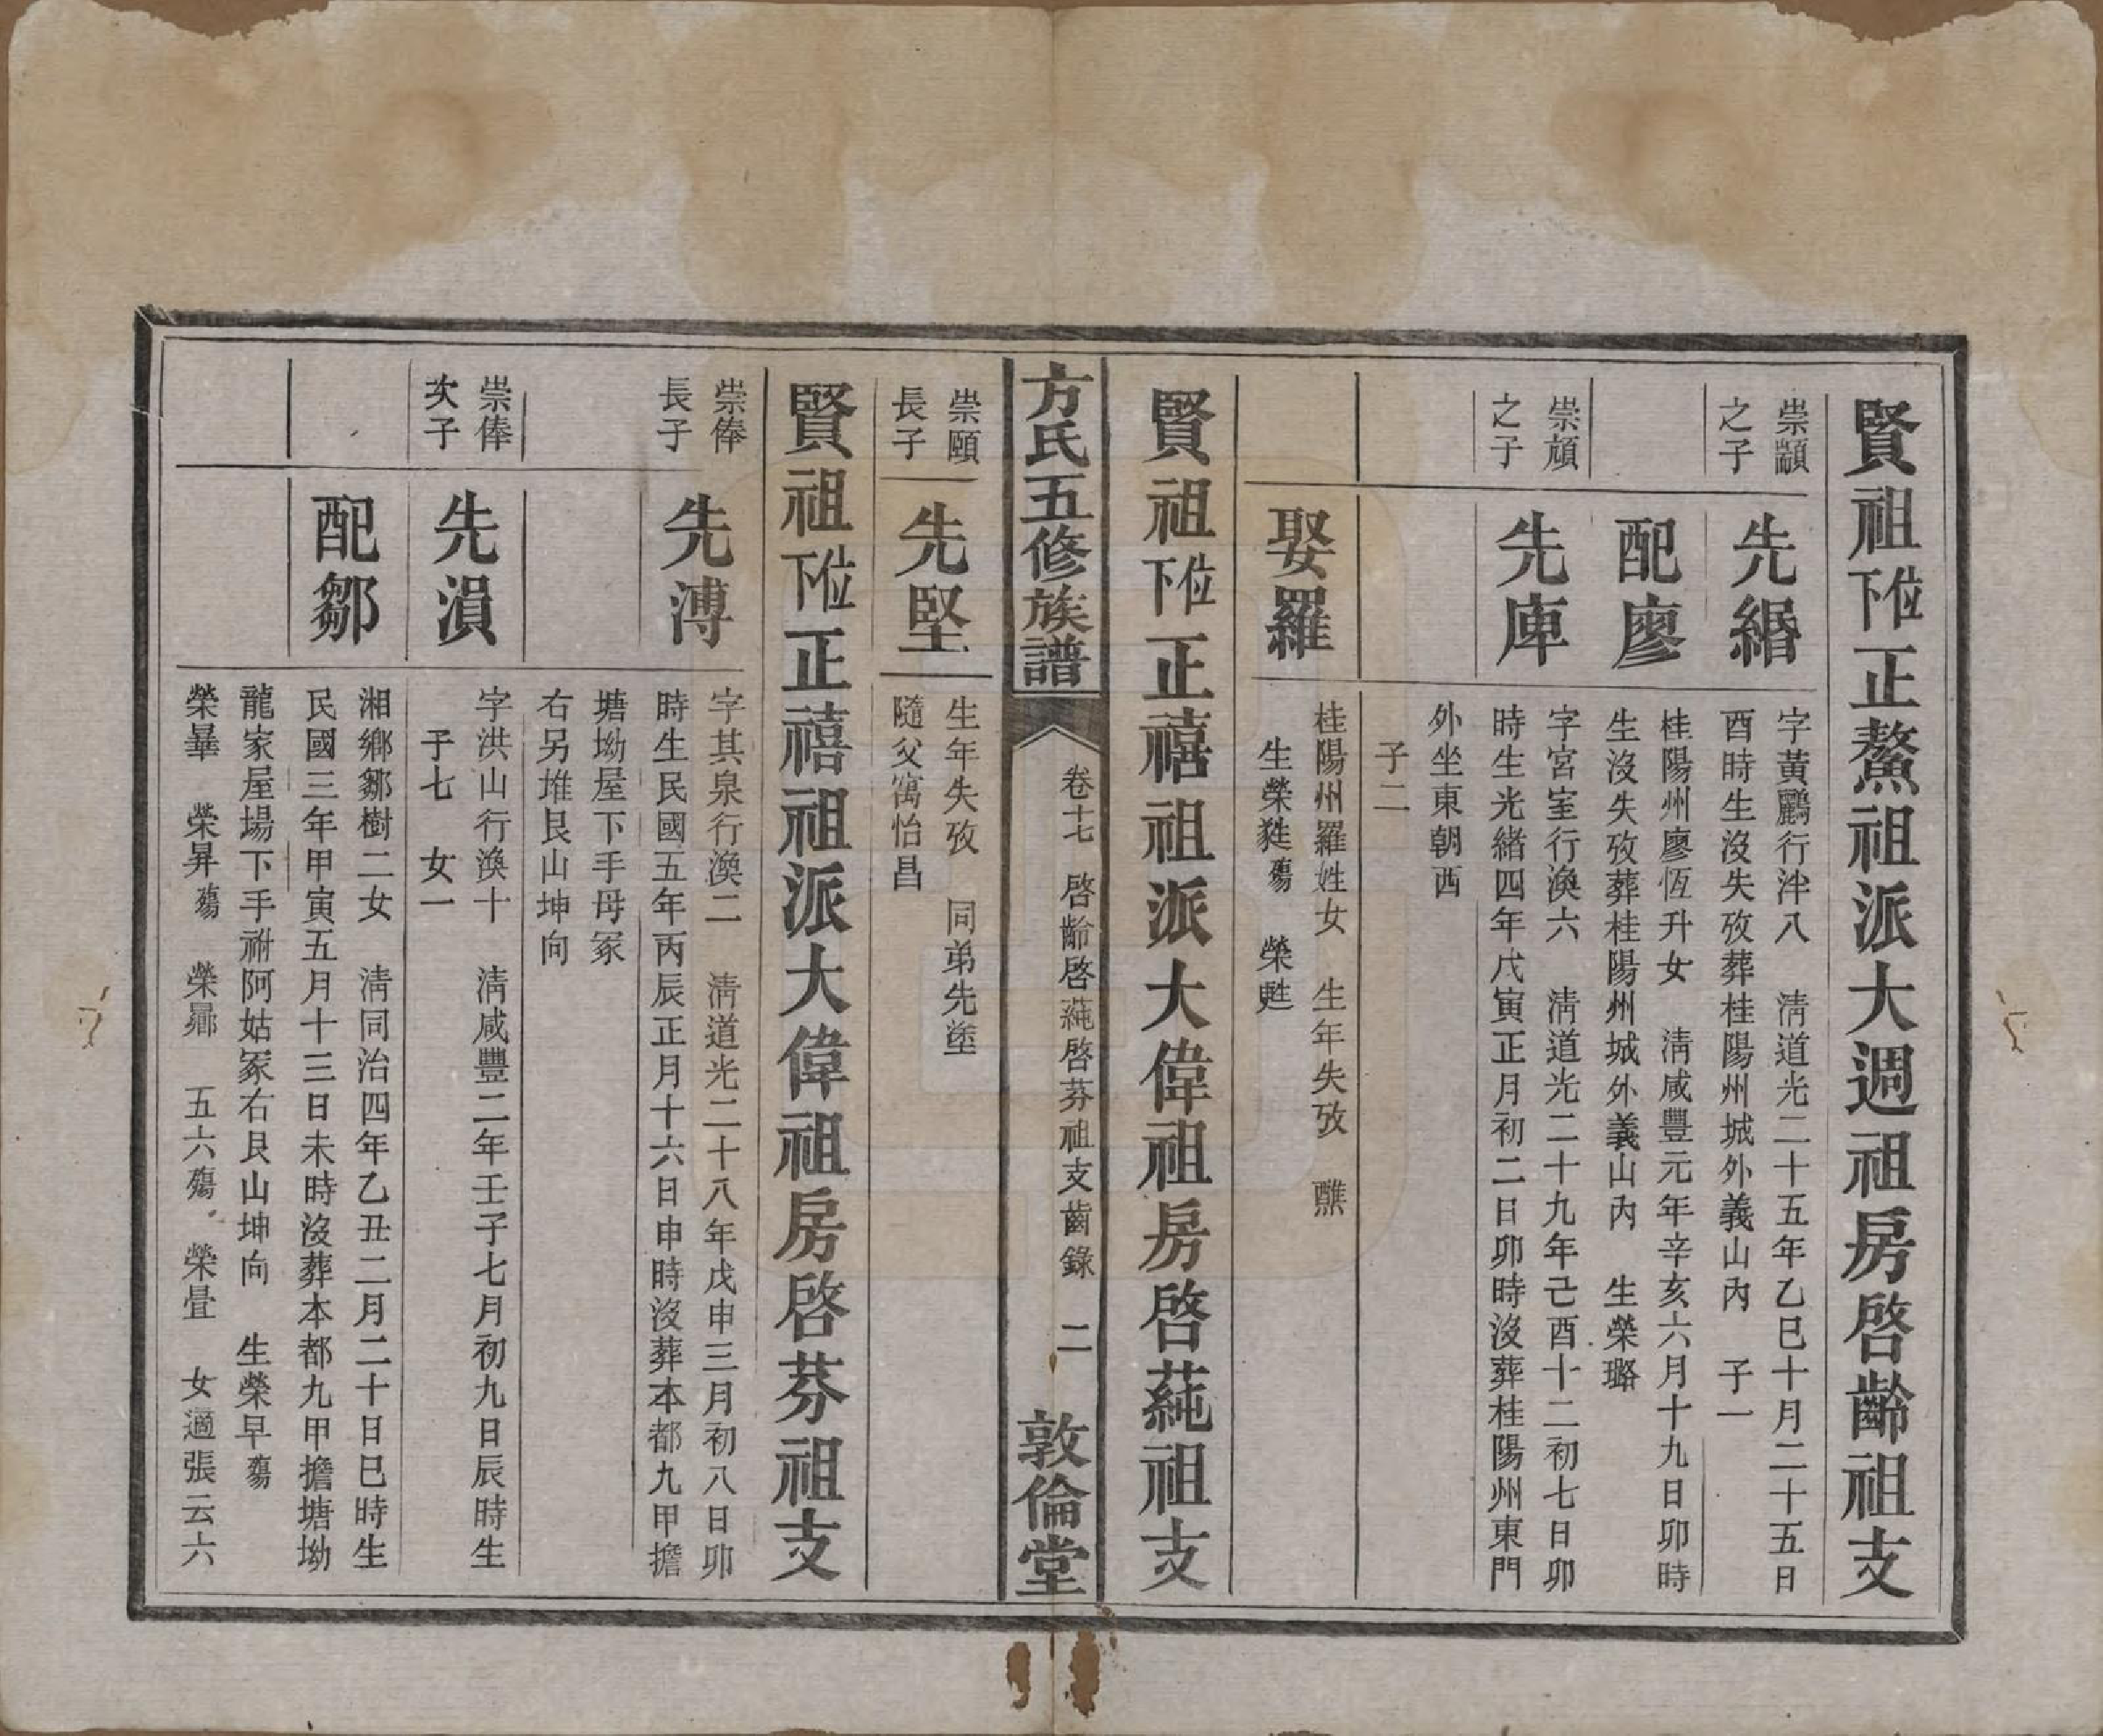 賢祖位下正鰲祖派大週祖房啓齡祖支
崇顓
之子
先緡
字黃鸝行泮八　淸道光二十五年乙巳十月二十五日
酉時生沒失攷葬桂陽州城外義山內　子一
配廖
桂陽州廖恆升女　淸咸豐元年辛亥六月十九日卯時
生沒失攷葬桂陽州城外義山內　生榮璐
崇頎
之子
先庫
字宮室行渙六　淸道光二十九年己酉十二初七日卯
時生光緒四年戊寅正月初二日卯時沒葬桂陽州東門
外坐東朝西
子二
娶羅
桂陽州羅姓女　生年失攷　醮
生榮甤殤　榮甦
賢祖位下正禧祖派大偉祖房啓蒓祖支
方氏五修族譜
卷十七　啓齡啓蒓啓芬祖支齒錄　二
敦倫堂
崇頤
長子
先堅
生年失攷　同弟先塗
隨父寓怡昌
賢祖位下正禧祖派大偉祖房啓芬祖支
崇俸
長子
先溥
字其泉行渙二　淸道光二十八年戊申三月初八日卯
時生民國五年丙辰正月十六日申時沒葬本都九甲擔
塘坳屋下手母冢
右另堆艮山坤向
崇俸
次子
先溳
字洪山行渙十　淸咸豐二年壬子七月初九日辰時生
子七　女一
配鄒
湘鄉鄒樹二女　淸同治四年乙丑二月二十日巳時生
民國三年甲寅五月十三日未時沒葬本都九甲擔塘坳
龍家屋場下手祔阿姑冢右艮山坤向　生榮早殤
榮畢　榮昇殤　榮鼎　五六殤　榮疊　女適張云六